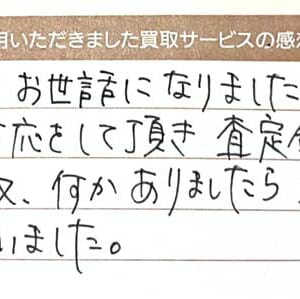 用いただきました買取サービスの感
お世話になりました
応をして頂き 査定
又、何かありましたら
いました。